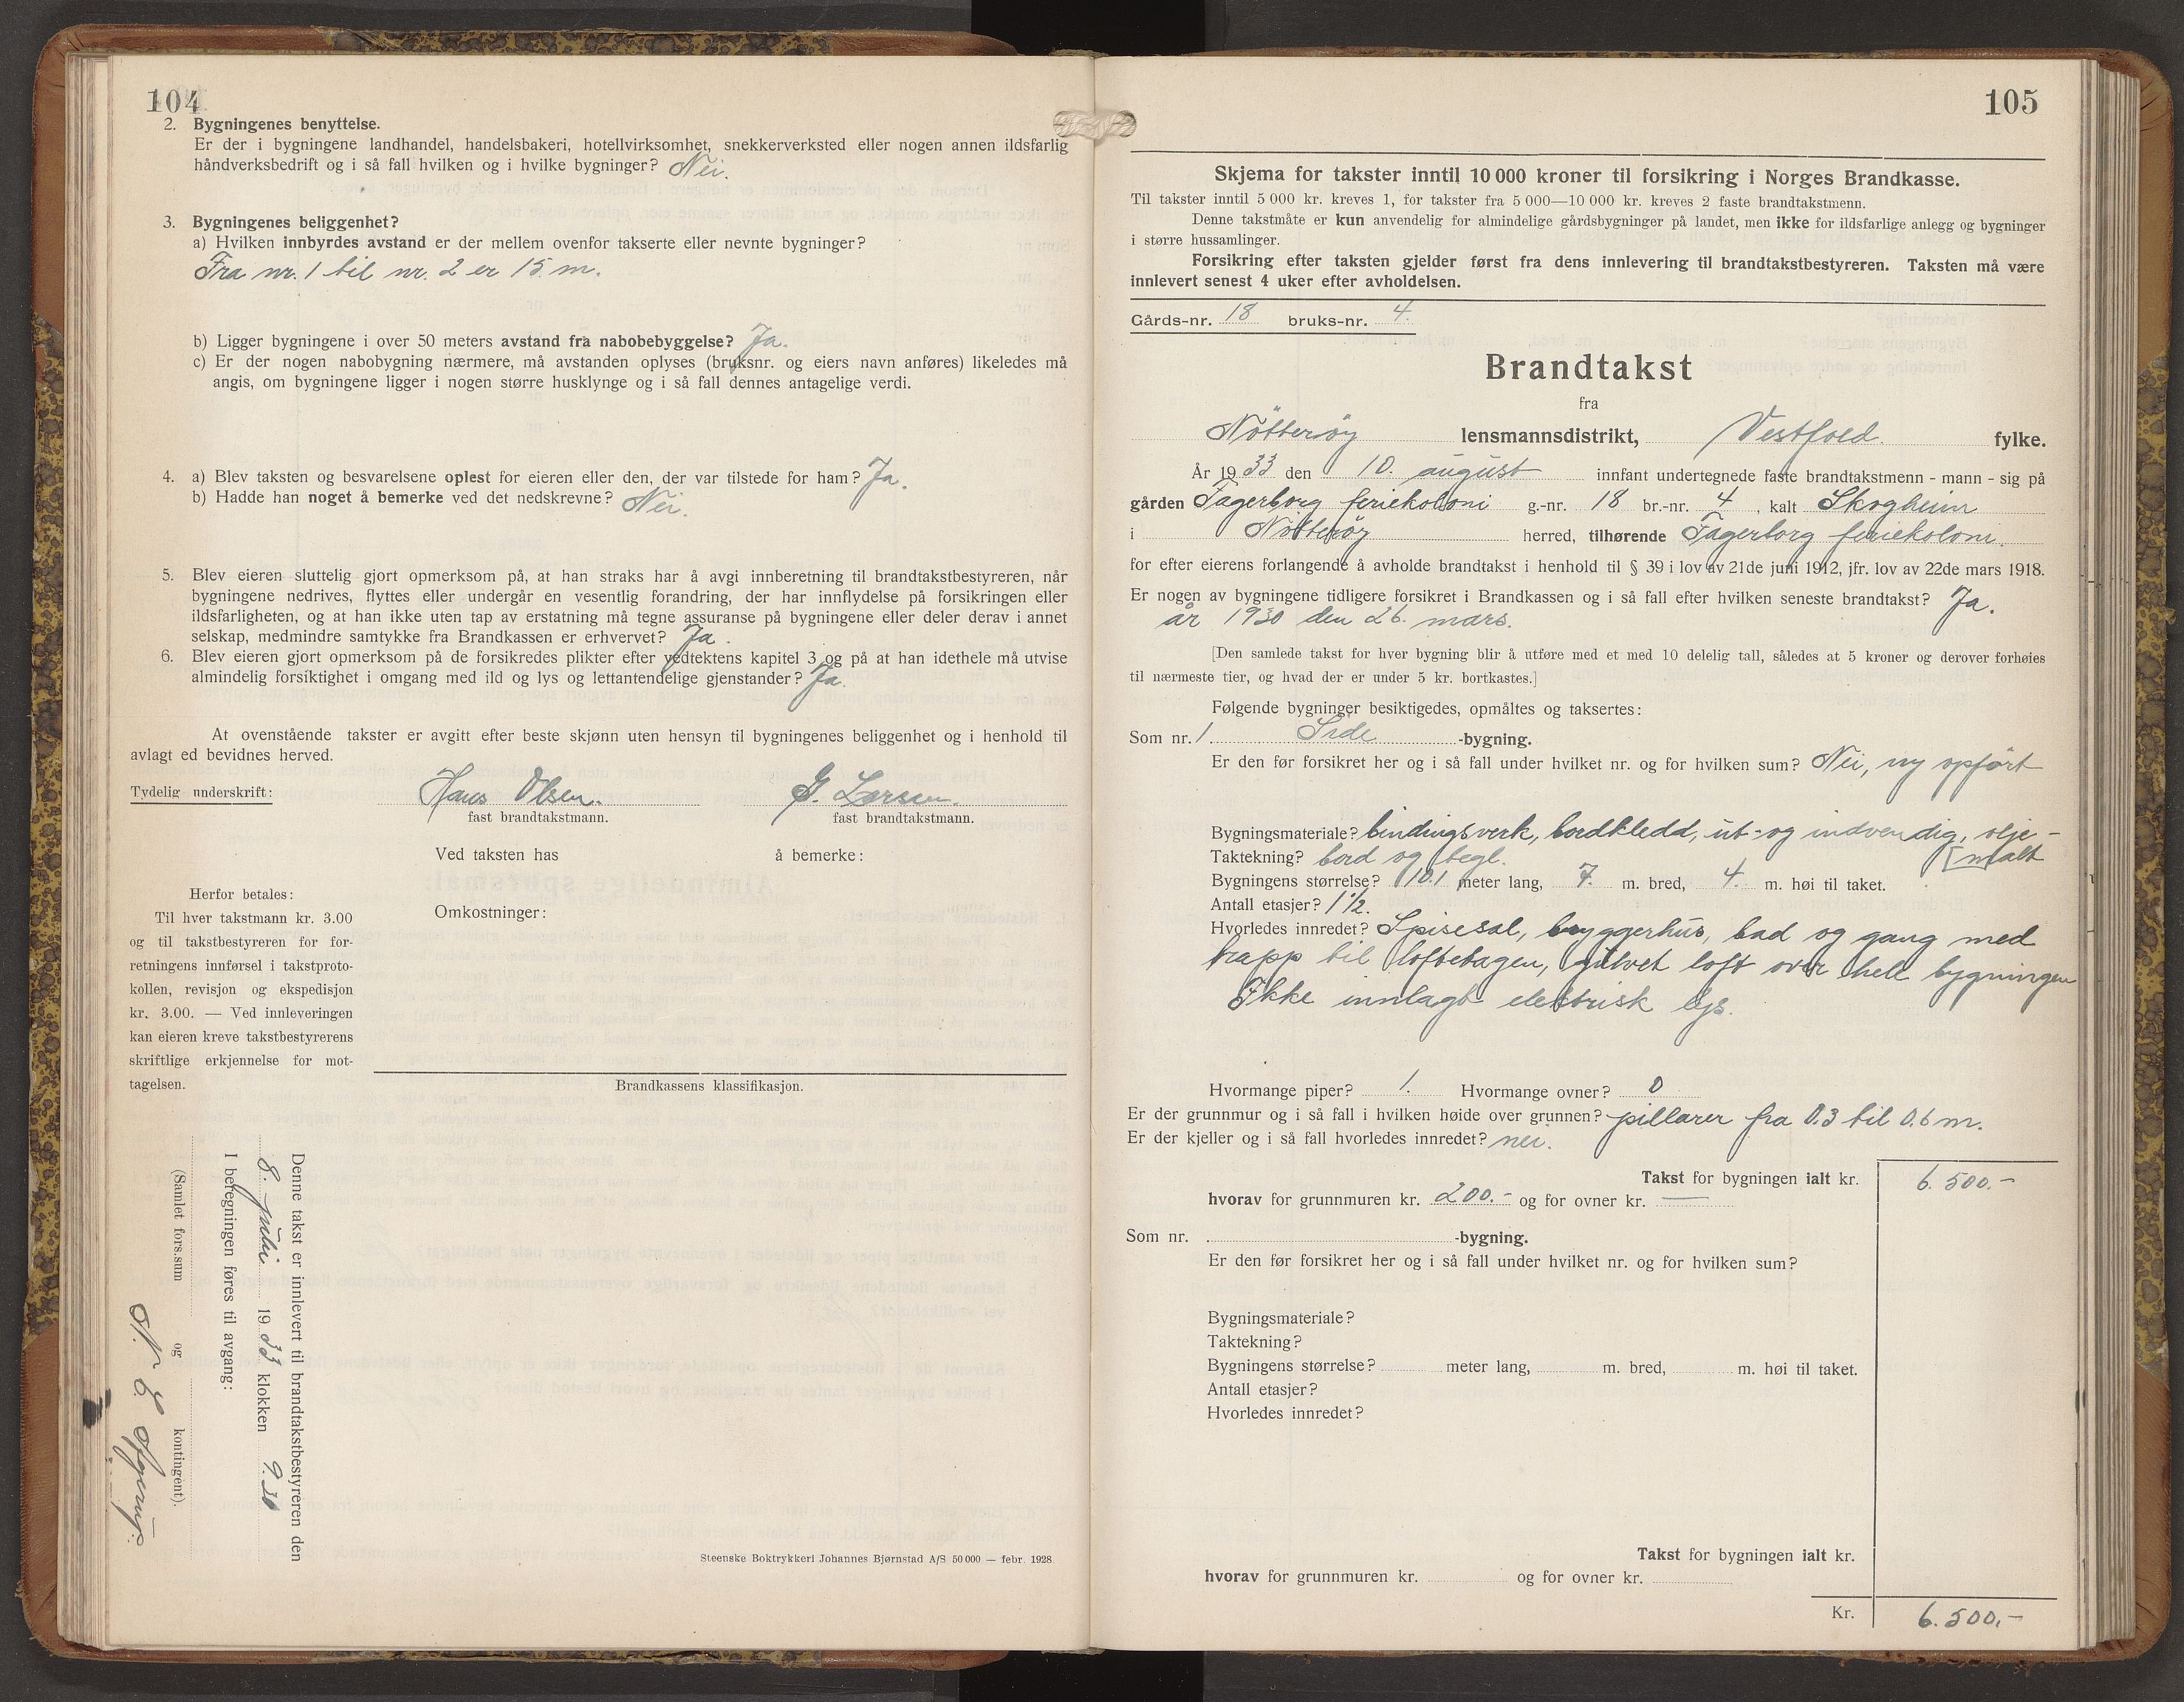 104
2. Bygningenes benyttelse.
Er der i bygningene landhandel, handelsbakeri, hotellvirksomhet, snekkerverksted eller nogen annen ildsfarlig
håndverksbedrift og i så fall hvilken og i hvilke bygninger? Nei.
3. Bygningenes beliggenhet?
a) Hvilken innbyrdes avstand er der mellem ovenfor takserte eller nevnte bygninger?
Fra nr. 1 til nr. 2 er 15 m.
b) Ligger bygningene i over 50 meters avstand fra nabobebyggelse? Ja.
c) Er der nogen nabobygning nærmere, må avstanden oplyses (bruksnr. og eiers navn anføres) likeledes må
angis, om bygningene ligger i nogen større husklynge og i så fall dennes antagelige verdi.
4. a) Blev taksten og besvarelsene oplest for eieren eller den, der var tilstede for ham? Ja.
b) Hadde han noget å bemerke ved det nedskrevne? Nei.
5. Blev eieren sluttelig gjort opmerksom på, at han straks har å avgi innberetning til brandtakstbestyreren, når
bygningene nedrives, flyttes eller undergår en vesentlig forandring, der har innflydelse på forsikringen eller
ildsfarligheten, og at han ikke uten tap av erstatning må tegne assuranse på bygningene eller deler derav i annet
selskap, medmindre samtykke fra Brandkassen er erhvervet? Ja.
6. Blev eieren gjort opmerksom på de forsikredes plikter efter vedtektens kapitel 3 og på at han idethele må utvise
almindelig forsiktighet i omgang med ild og lys og lettantendelige gjenstander? Ja.
At ovenstående takster er avgitt efter beste skjønn uten hensyn til bygningenes beliggenhet og i henhold til
avlagt ed bevidnes herved.
Tydelig underskrift: Hans Olsen. G. Larsen.
fast brandtakstmann. fast brandtakstmann.
Ved taksten has å bemerke:
Herfor betales:
Til hver takstmann kr. 3.00
og til takstbestyreren for for-
retningens innførsel i takstproto-
kollen, revisjon og ekspedisjon
kr. 3.00. — Ved innleveringen
kan eieren kreve takstbestyrerens
skriftlige erkjennelse for mot-
tagelsen.
Omkostninger:
Brandkassens klassifikasjon.
Denne takst er innlevert til brandtakstbestyreren den
8. juli 1933 klokken 9.30
I beregningen føres til avgang:
(Samlet fors.sum og kontingent).
Steenske Boktrykkeri Johannes Bjørnstad A/S 50 000 — febr. 1928
105
Skjema for takster inntil 10 000 kroner til forsikring i Norges Brandkasse.
Til takster inntil 5 000 kr. kreves 1, for takster fra 5 000—10 000 kr. kreves 2 faste brandtakstmenn.
Denne takstmåte er kun anvendelig for almindelige gårdsbygninger på landet, men ikke for ildsfarlige anlegg og bygninger
i større hussamlinger.
Forsikring efter taksten gjelder først fra dens innlevering til brandtakstbestyreren. Taksten må være
innlevert senest 4 uker efter avholdelsen.
Gårds-nr. 18 bruks-nr. 4.
Brandtakst
fra
Nötteröy lensmannsdistrikt, Vestfold. fylke.
År 1933 den 10. august innfant undertegnede faste brandtakstmenn - mann - sig på
gården Fagerborg feriekoloni g.-nr. 18 br.-nr. 4, kalt Skogheim
i Nötteröy herred, tilhørende Fagerborg feriekoloni.
for efter eierens forlangende å avholde brandtakst i henhold til § 39 i lov av 21de juni 1912, jfr. lov av 22de mars 1918.
Er nogen av bygningene tidligere forsikret i Brandkassen og i så fall efter hvilken seneste brandtakst? Ja.
år 1930 den 26. mars.
[Den samlede takst for hver bygning blir å utføre med et med 10 delelig tall, således at 5 kroner og derover forhøies
til nærmeste tier, og hvad der er under 5 kr. bortkastes.]
Følgende bygninger besiktigedes, opmåltes og taksertes:
Som nr. 1 Side -bygning.
Er den før forsikret her og i så fall under hvilket nr. og for hvilken sum? Nei, ny opfört
Bygningsmateriale? bindingsverk, bordkledd, ut- og indvendig, olje-
[malt
Taktekning? bord og tegl.
Bygningens størrelse? 10.1 meter lang, 7. m. bred, 4. m. høi til taket.
Antall etasjer? 1 1/2.
Hvorledes innredet? Spisesal, bryggerhus, bad og gang med
trapp til loftetagen, gulvet loft over hele bygningen
Ikke innlagt elektrisk lys.
Hvormange piper? 1. Hvormange ovner? 0
Er der grunnmur og i så fall i hvilken høide over grunnen? pillarer fra 0.3 til 0.6 m.
Er der kjeller og i så fall hvorledes innredet? nei.
Takst for bygningen ialt kr. 6.500.-
hvorav for grunnmuren kr. 200.- og for ovner kr. —
Som nr. -bygning.
Er den før forsikret her og i så fall under hvilket nr. og for hvilken sum?
Bygningsmateriale?
Taktekning?
Bygningens størrelse? meter lang, m. bred, m. høi til taket.
Antall etasjer?
Hvorledes innredet?
Takst for bygningen ialt kr.
hvorav for grunnmuren kr. og for ovner kr.
Kr. 6.500,-